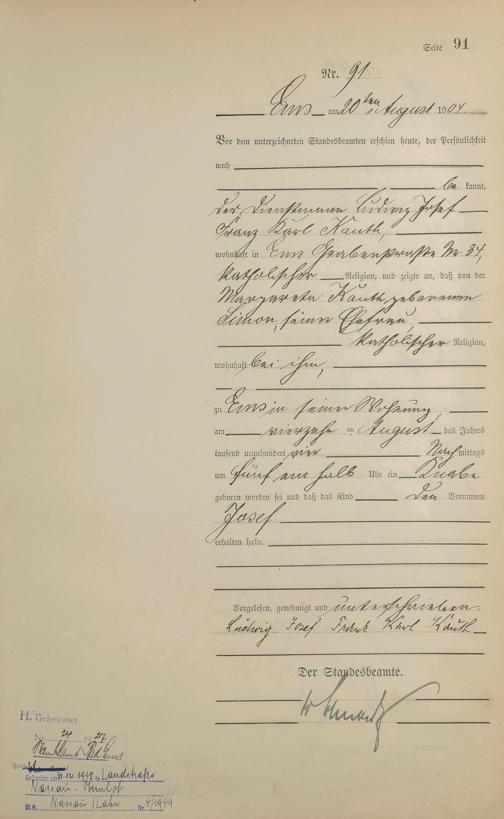 Seite 91
Nr. 91
Ems am 20ten August 1904
Vor dem unterzeichneten Standesbeamten erschien heute, der Persönlichkeit
nach
be kannt,
der Dienstmann Ludwig Josef
Franz Karl Kauth,
wohnhaft in Ems Grabenstraße Nr. 34,
katholischer Religion, und zeigte an, daß von der
Margareta Kauth geborenen
Simon, seiner Ehefrau,
katholischer Religion,
wohnhaft bei ihm,
zu Ems in seiner Wohnung,
am vierzehn ten August des Jahres
tausend neunhundert vier Nach mittags
um fünf ein halb Uhr ein Knabe
geboren worden sei und daß das Kind den Vornamen
Josef
erhalten habe.
Vorgelesen, genehmigt und unterschrieben.
Ludwig Josef Frank Karl Kauth
Der Standesbeamte.
H. Geheiratet
Nr. 24 1927
Standesamt Bad Ems
1948 Landstraße
Nassau - Bernhof
St.A. Nassau / Lahn Nr. 4/1949